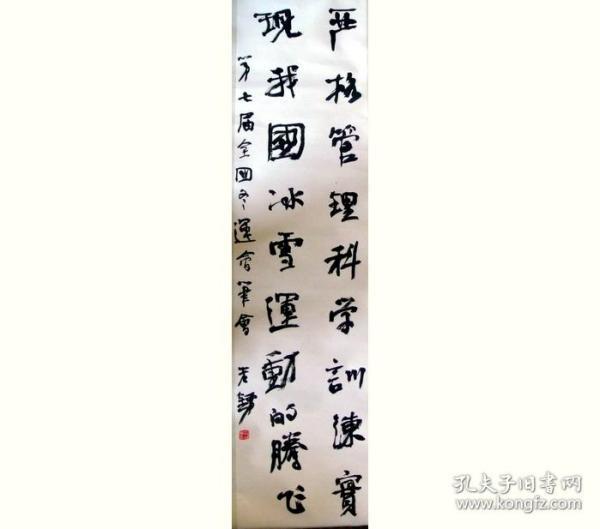 严格管理科学训練實
現我國冰雪運動的騰飞
第七届全囯冬運會筆會
孔夫子旧書网
www.kongfz.com